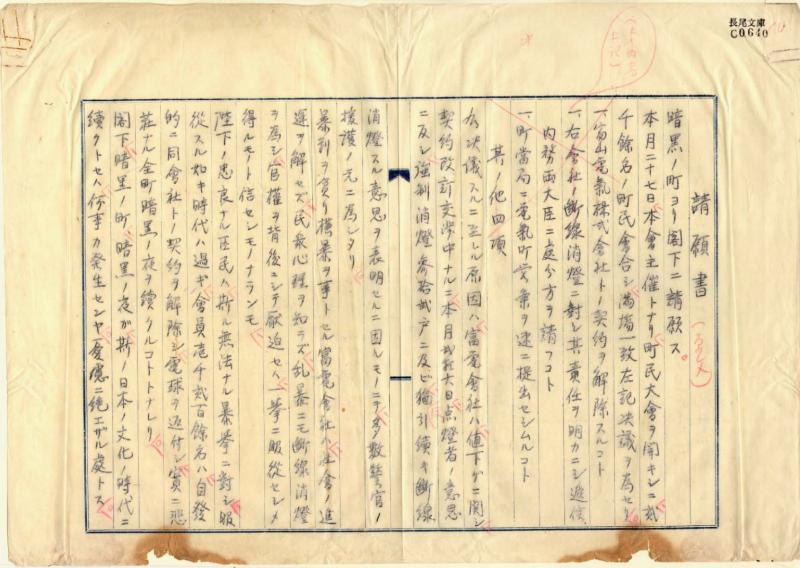 長尾文庫
C0640
請願書
暗黒ノ町ヨリ閣下ニ請願ス。
本月二十七日本會主催トナリ町民大會ヲ開キシニ弍
千餘名ノ町民會合シ満場一致左記決議ヲ為セリ
一、富山電氣株式会社トノ契約ヲ解除スルコト
一、右會社ノ断線消燈ニ對シ其責任ヲ明カニシ遞信、
内務両大臣ニ処分方ヲ請フコト
一、町當局ニ電氣町営案ヲ速ニ提出セシムルコト
其ノ他四項
右決議スルニ至レル原因ハ富電會社ハ値下ゲニ関シ
契約改訂交渉中ナルニ本月弍拾六日点燈者ノ意思
ニ反シ強制消燈参拾弍戸ニ及ビ猶引續キ断線
消燈スル意思ヲ表明セルニ因ルモノニテ多数警官ノ
援護ノ元ニ為シタリ
暴利ヲ貪リ横暴ヲ事トセル富電會社ハ社會ノ進
運ヲ解セズ民衆心理ヲ知ラズ乱暴ニモ断線消燈
ヲ為シ官權ヲ背後ニシテ厭迫セバ一挙ニ服從セシメ
得ルモノト信センモノナランモ
陛下ノ忠良ナル臣民ハ斯ル無法ナル暴挙ニ對シ服
從スル如キ時代ハ過ギ會員壱千弍百餘名ハ自發
的ニ同會社トノ契約ヲ解除シ電球ヲ返付シ實ニ悲
莊ナル全町暗黒ノ夜ヲ續クルコトトナレリ
閣下暗黒ノ町、暗黒ノ夜ガ斯ノ日本ノ文化ノ時代ニ
續クトセバ何事カ発生センヤ憂慮ニ絶エザル處トス